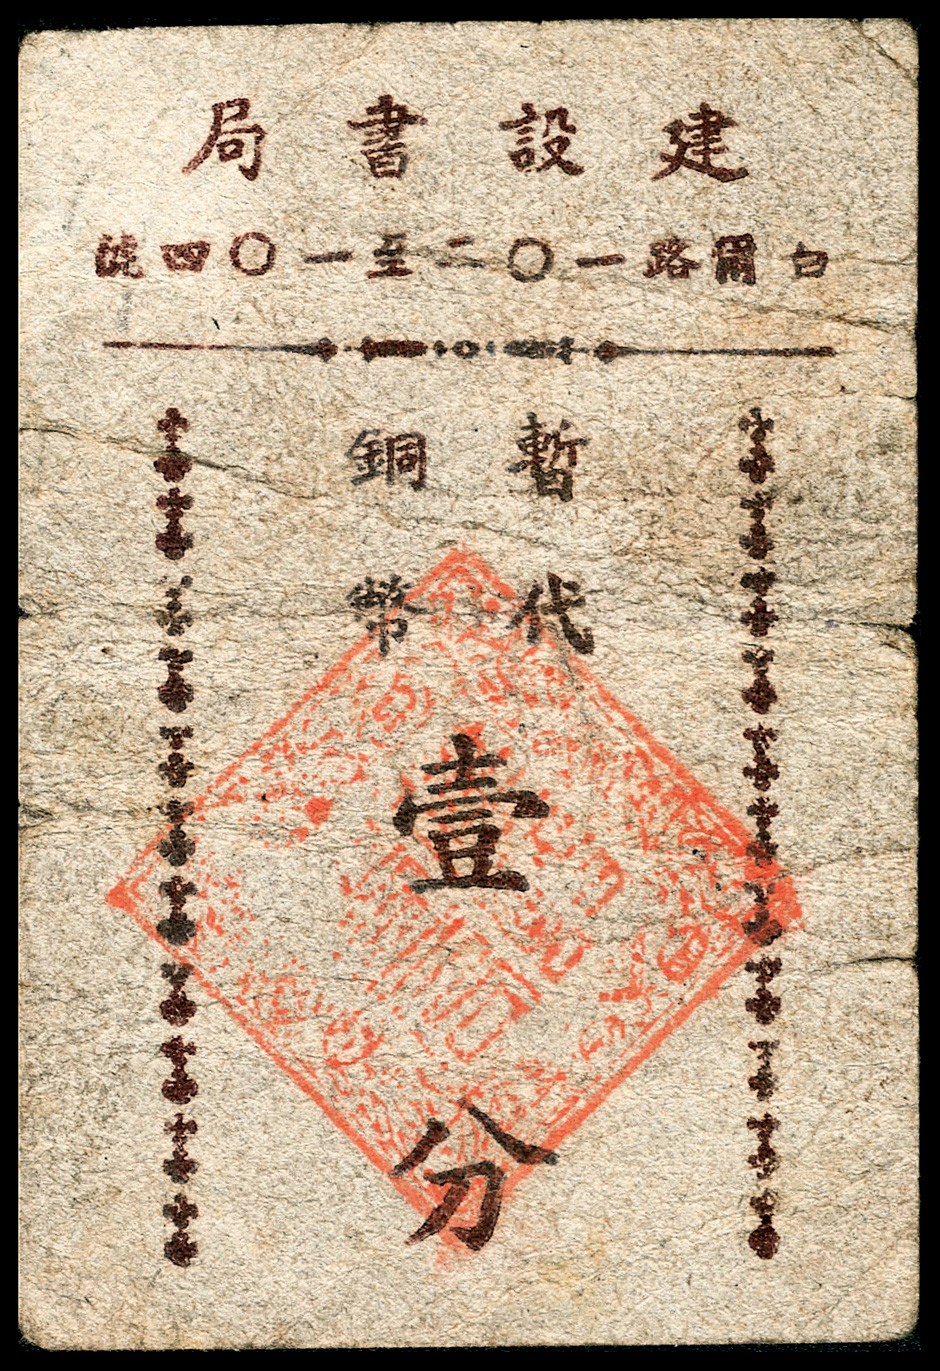 建設書局
白爾路一〇二至一〇四號
暫代
銅幣
壹分